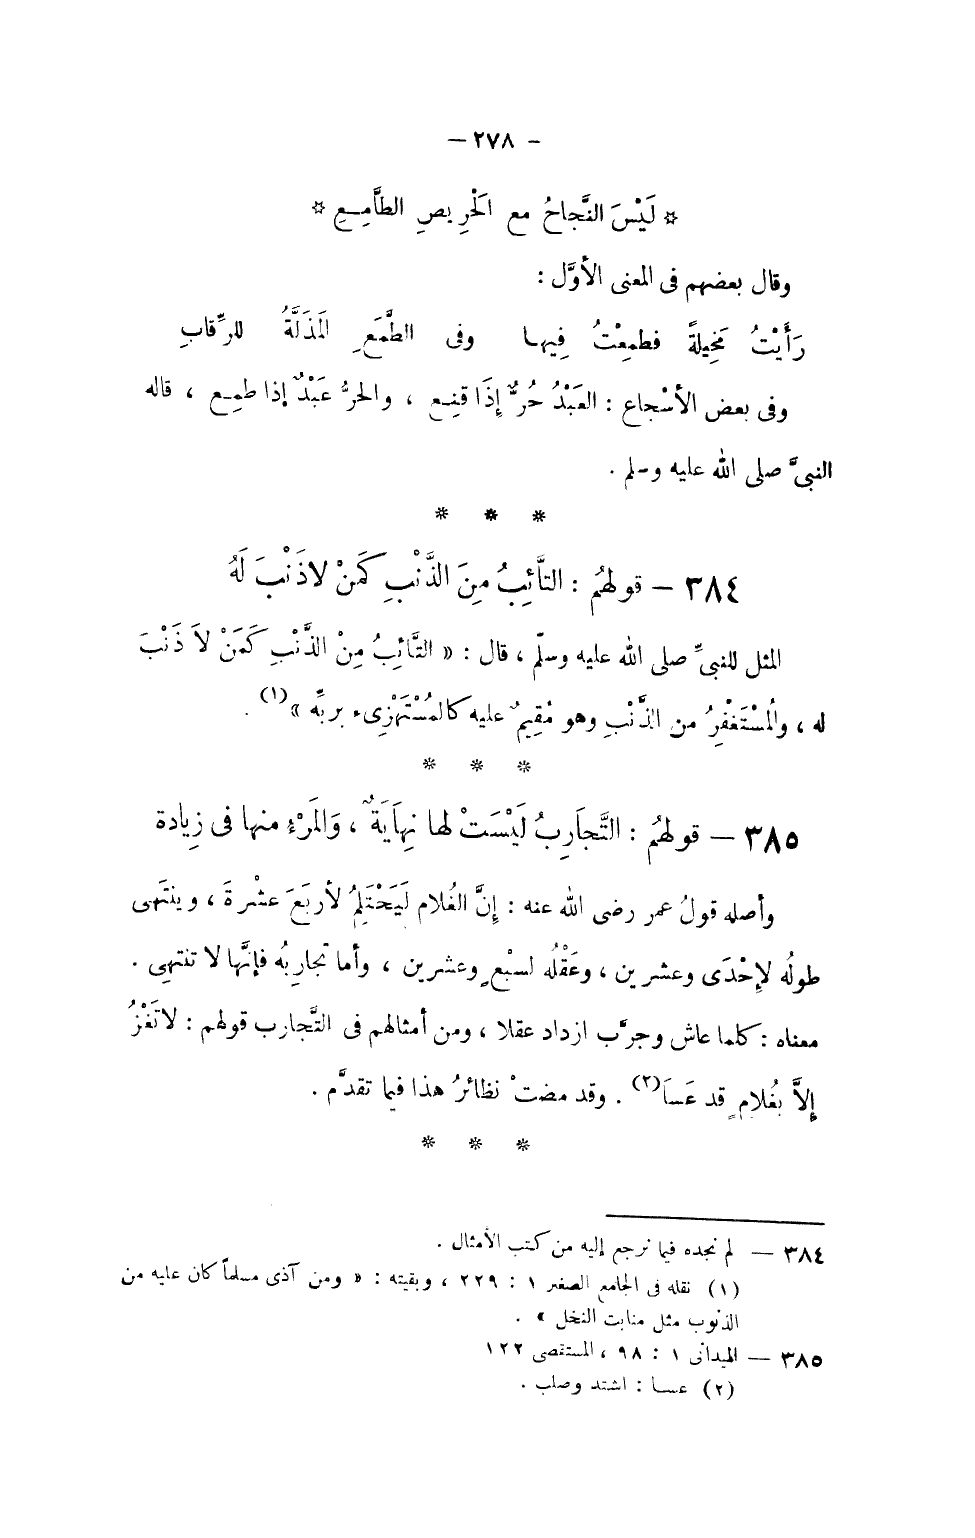 — ٢٧٨ —
* لَيْسَ النَّجاحُ مع الحْرِيصِ الطاَّمِـعِ *
وقال بعضهم فى المعنى الأوَّل :
رَأَيْتُ مَخِيلةً فطمِعْتُ فِيهـا وفى الطَّمَعِ المَذَلَّةُ للرِّقابِ
وفى بعض الأسْجاع : العَبْدُ حُرٌّ إِذَا قنِـع ، والحرُّ عَبْدٌ إذا طمِـع ، قاله
النبىَّ صلى الله عليه وسلم .
* * *
٣٨٤ – قولهُم : التاَّئِبُ مِنَ الذَّنْبِ كَمَنْ لاذَنْبَ لَهُ
المثل للنبىِّ صلى الله عليه وسلّم ، قال : « التَّائبُ مِنْ الذَّنْبِ كَمَنْ لاَ ذَنْبَ
له ، والُمسْتَغْفِرُ من الذَّنْبِ وهو مُقِيمٌ عليه كالمُسْتَهْزِىء بربِّه »(١) .
* * *
٣٨٥ – قولهُم : التَّجاَرِبُ لَيْسَتْ لها نِهاَيَةٌ ، وَالمَرْء منها فى زِيادة
وأصله قولُ عمر رضى الله عنه : إنَّ الغُلام لَيَحْتَلِمُ لأربَعَ عشْرةَ ، وينتَهى
طولُه لإحْدَى وعشرين ، وعَقْلُه لسبْعٍ وعشرين ، وأما تجارِبُه فإنَّها لا تنتهِى .
معناه : كلما عاش وجرَّب ازداد عقلا ، ومن أمثالهم فى التَّجارب قولهم : لا تَغْزُ
إلاَّ بغُلامٍ قد عَسَا(٢) . وقد مضتْ نظائرُ هذا فيما تقدَّم .
* * *
٣٨٤ — لم نجده فيما نرجع إليه من كتب الأمثال .
(١) نقله فى الجامع الصغير ١ : ٢٢٩ ، وبقيته : « ومن آذى مسلماً كان عليه من
الذنوب مثل منابت النخل » .
٣٨٥ — الميدانى ١ : ٩٨ ، المستقصى ١٢٢
(٢) عسـا : اشتد وصلب .